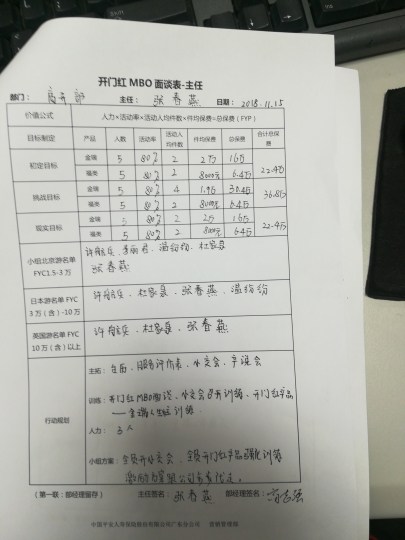 开门红 MBO 面谈表-主任
部门： 主任： 张春燕 日期： 2018.11.15
价值公式 人力×活动率×活动人均件数×件均保费=总保费（FYP）
目标制定 产品 人数 活动率 活动人均件数 件均保费 总保费 合计总保费
初定目标 金瑞 5 80% 2 2万 16万 22.4万
福美 5 80% 2 8000元 6.4万
挑战目标 金瑞 5 80% 4 1.9万 30.4万 36.8万
福美 5 80% 2 8000元 6.4万
现实目标 金瑞 5 80% 2 2万 16万 22.4万
福美 5 80% 2 8000元 6.4万
小组北京游名单 FYC1.5-3 万 杜家泉
张春燕
日本游名单 FYC 3 万（含）-10万 杜家泉、张春燕、
英国游名单 FYC 10 万（含）以上 杜家泉、张春燕
行动规划
主拓： 生面、服务评价表、外交会、产说会
训练： 开门红MBO面谈、外交会召开训练、开门红产品
训练
人力： 3人
小组方案： 全员开外交会、全员开门红产品 训练
（第一联：部经理留存） 主任签名： 张春燕 部经理签名：
中国平安人寿保险股份有限公司广东分公司 营销管理部